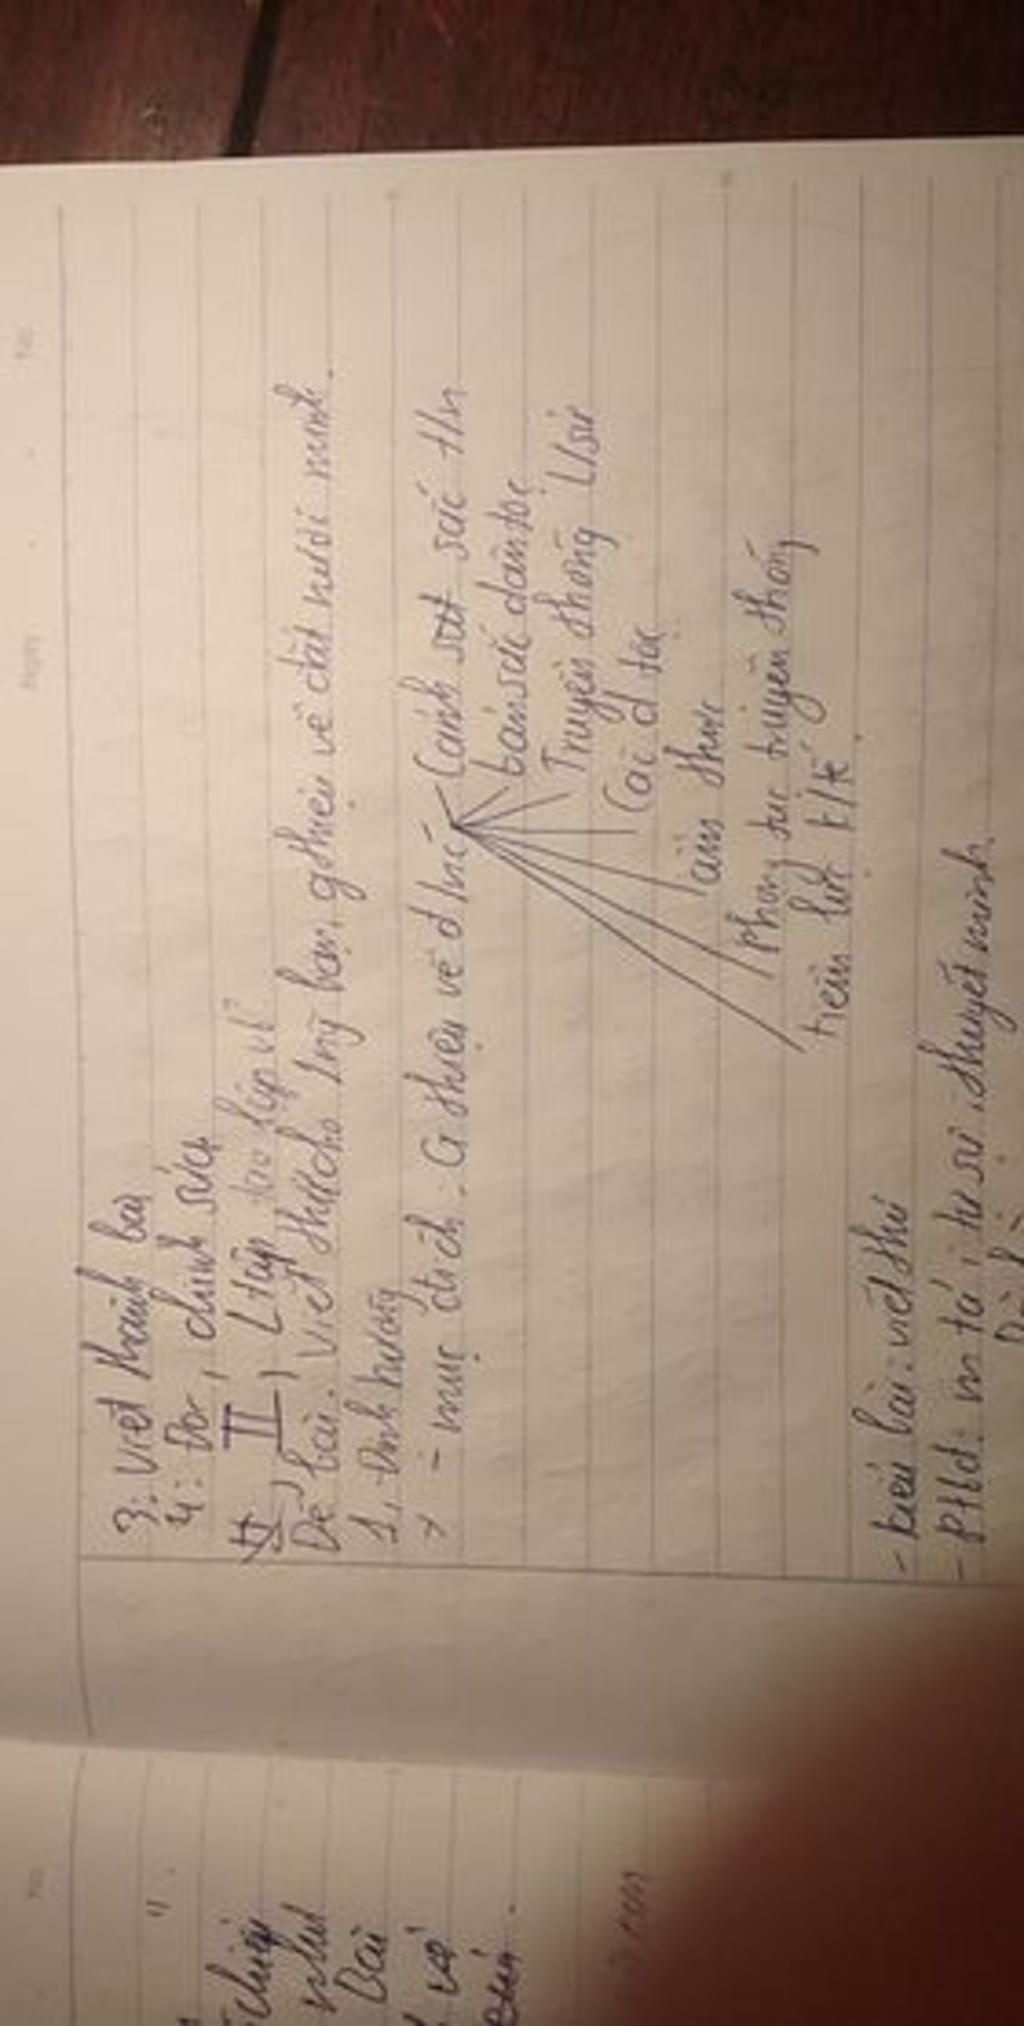 3: viết thành bài
4: Đọc, chỉnh sửa
II) L tập tạo lập vb
Đề bài: Viết thư cho 1 ng bạn, gthiệu về đất nước mình.
1, Định hướng
- mục đích: G thiệu về đ nc
Cảnh sắc t/n
bản sắc dân tộc
Truyền thống l/sử
Ca d tục
ẩm thực
phong tục truyền thống
tiềm lực k/tế
- kiểu bài: viết thư
- Ptbđ: m tả, tự sự, thuyết minh
như
Bài
và